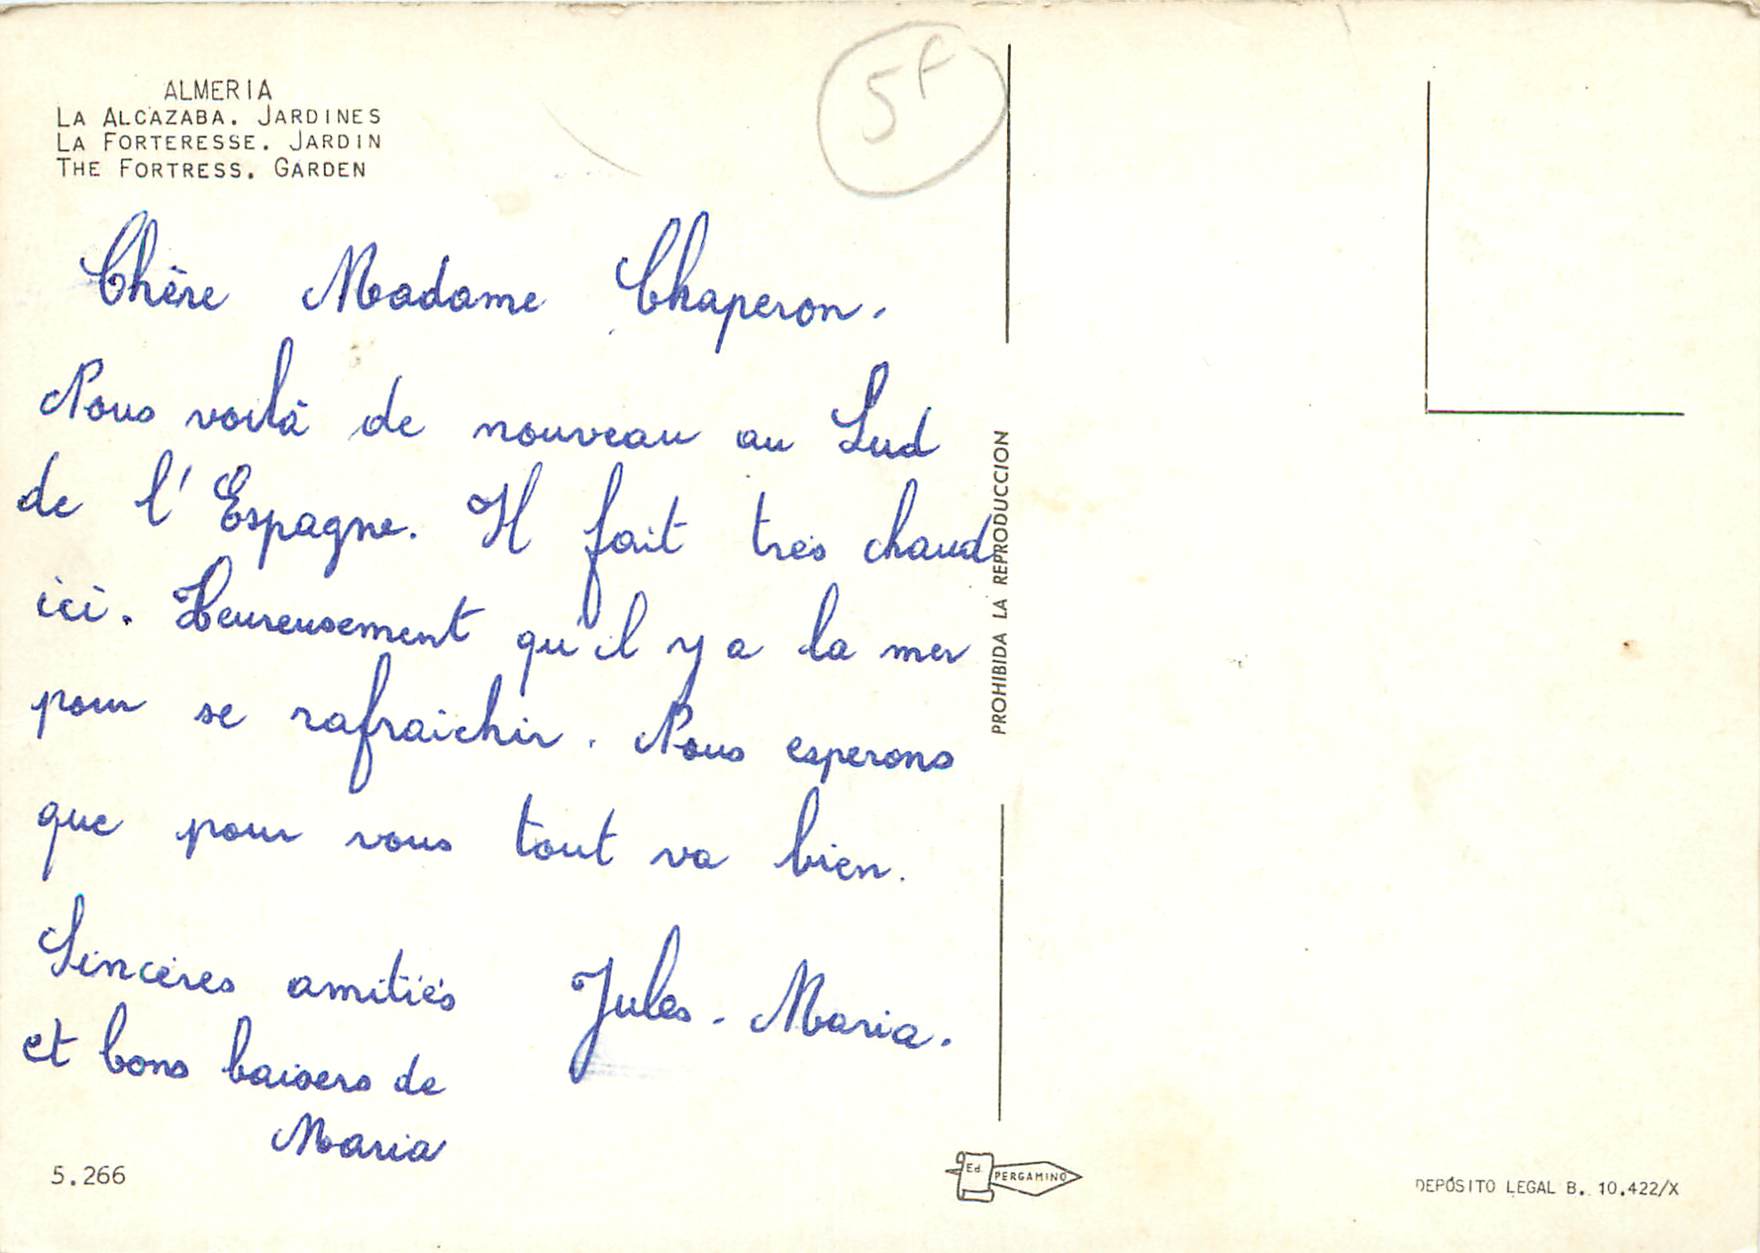 ALMERIA
LA ALCAZABA. JARDINES
LA FORTERESSE. JARDIN
THE FORTRESS. GARDEN
5F
Chère Madame Chaperon.
Nous voilà de nouveau au Sud
de l'Espagne. Il fait très chaud
ici. Heureusement qu'il y a la mer
pour se rafraichir. Nous esperons
que pour vous tout va bien.
Sincères amitiés Jules - Maria.
et bons baisers de
Maria
5.266
PROHIBIDA LA REPRODUCCION
Ed. PERGAMINO
DEPÓSITO LEGAL B. 10.422/X